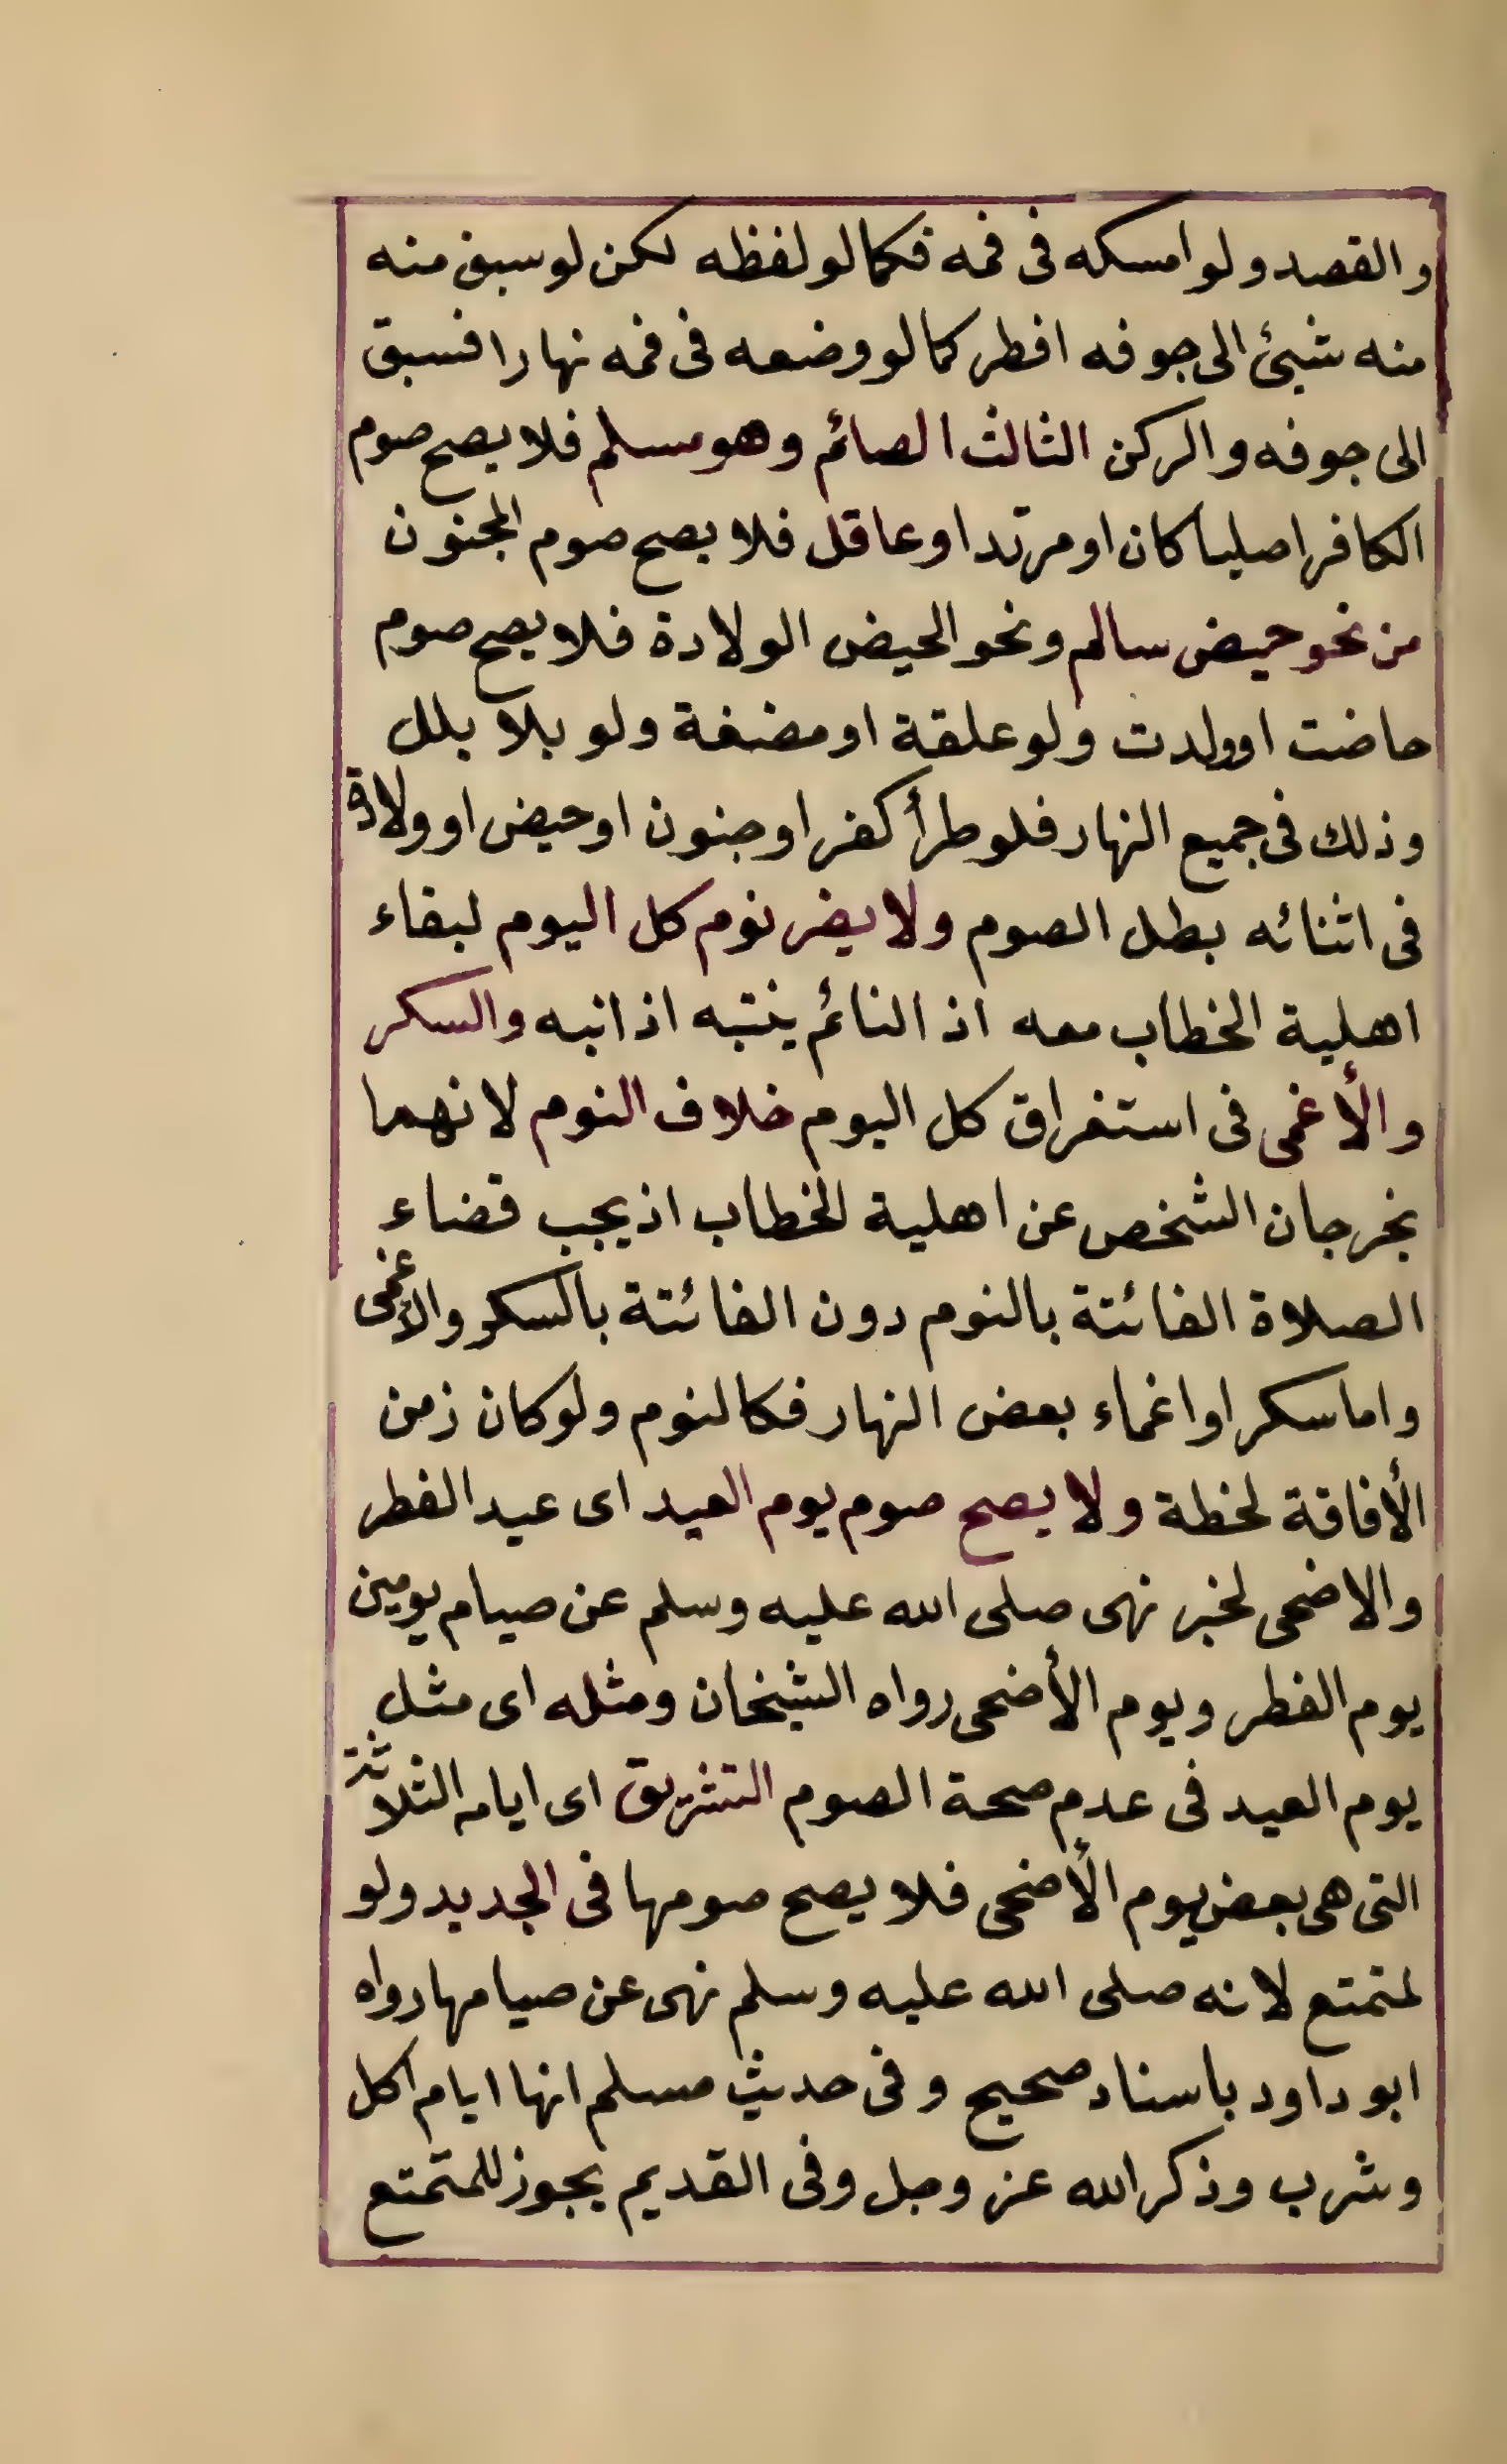 والقصد ولو امسكه فى فمه فكما لو لفظه لكن لو سبق منه
منه شيئ الى جوفه افطر كما لو وضعه فى فمه نهارا فسبق
الى جوفه والركن الثالث الصائم وهو مسلم فلا يصح صوم
الكافر اصليا كان او مرتدا وعاقل فلا يصح صوم المجنون
من نحو حيض سالم ونحو الحيض الولادة فلا يصح صوم
حاضت او ولدت ولو علقة او مضغة ولو بلا بلل
وذلك فى جميع النهار فلو طرأ كفر او جنون او حيض او ولادة
فى اثنائه بطل الصوم ولا يضر نوم كل اليوم لبقاء
اهلية الخطاب معه اذ النائم ينتبه اذ انبه والسكر
والأغمى فى استغراق كل اليوم خلاف النوم لانهما
يخرجان الشخص عن اهلية الخطاب اذ يجب قضاء
الصلاة الفائتة بالنوم دون الفائتة بالسكر والأغمى
واما سكر او اغماء بعض النهار فكالنوم ولو كان زمن
الأفاقة لحظة ولا يصح صوم يوم العيد اى عيد الفطر
والاضحى لخبر نهى صلى الله عليه وسلم عن صيام يومين
يوم الفطر ويوم الأضحى رواه الشيخان ومثله اى مثل
يوم العيد فى عدم صحة الصوم التشريق اى ايامه الثلاثة
التى هى بعض يوم الأضحى فلا يصح صومها فى الجديد ولو
لمتمتع لانه صلى الله عليه وسلم نهى عن صيامها رواه
ابو داود باسناد صحيح وفى حديث مسلم انها ايام اكل
وشرب وذكر الله عز وجل وفى القديم يجوز للمتمتع